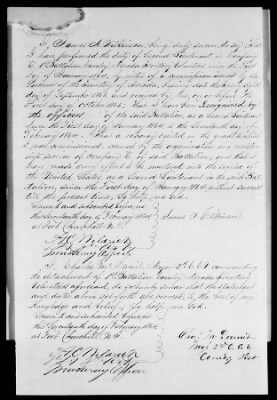 I, James A. Wilkinson, being duly sworn, do say that
I have performed the duty of Second Lieutenant in Company
1st Battalion Cavalry Nevada Territory Volunteers since the First
day of January 1864, by virtue of a commission issued by the
Governor of the Territory of Nevada, bearing date the
day of September 1863, and received by me on or before the
First day of October 1863; That I have been Recognized by
the officers of the said Battalion, as a Second Lieutenant
from the First day of January 1864 to the Seventeenth day of
February 1864. That a vacancy existed in the grade to which
I was commissioned, caused by the organization and muster
into service of Company of said Battalion; and that I
have made every effort to be mustered into the service of
the United States as a Second Lieutenant in the said Bat-
talion, since the First day of January 1864 without success
till the present time; So help me God.
Sworn to and subscribed before me
this Seventeenth day of February 1864
at Fort Churchill N.T.
James A. Wilkinson
Mustering Officer
I, Charles McDermit, Major 2d C.V.C. commanding
the detachment of 1st Battalion Cavalry Nevada Territory
Volunteers aforesaid, do solemnly swear that the statements
and dates above set forth are correct, to the best of my
knowledge and belief; So help me God.
Sworn to and subscribed before me
this Seventeenth day of February 1864
at Fort Churchill N.T.
Chas. McDermit
Maj. 2d C.V.C.
Comdg Post
Mustering Officer